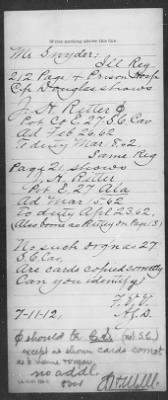 Write nothing above this line.
Mr Snyder:
Ill Reg
212 Page 4 Prison Hosp
Cp Douglas shows
J. H. Ritter
Pvt Co E. 27 S.C. Cav.
Ad Feb 26.62
To duty Mar. 8.62.
Same Reg
Page 21 shows
H. Ritter
Pvt E. 27 Ala
Ad Mar 15.62
To duty April 23.62.
No such orgn as 27
S.C. Cav.
Are cards copied correctly
Can you identify
7-11-12.
should be
except as shown cards correct
as to name
no addl.